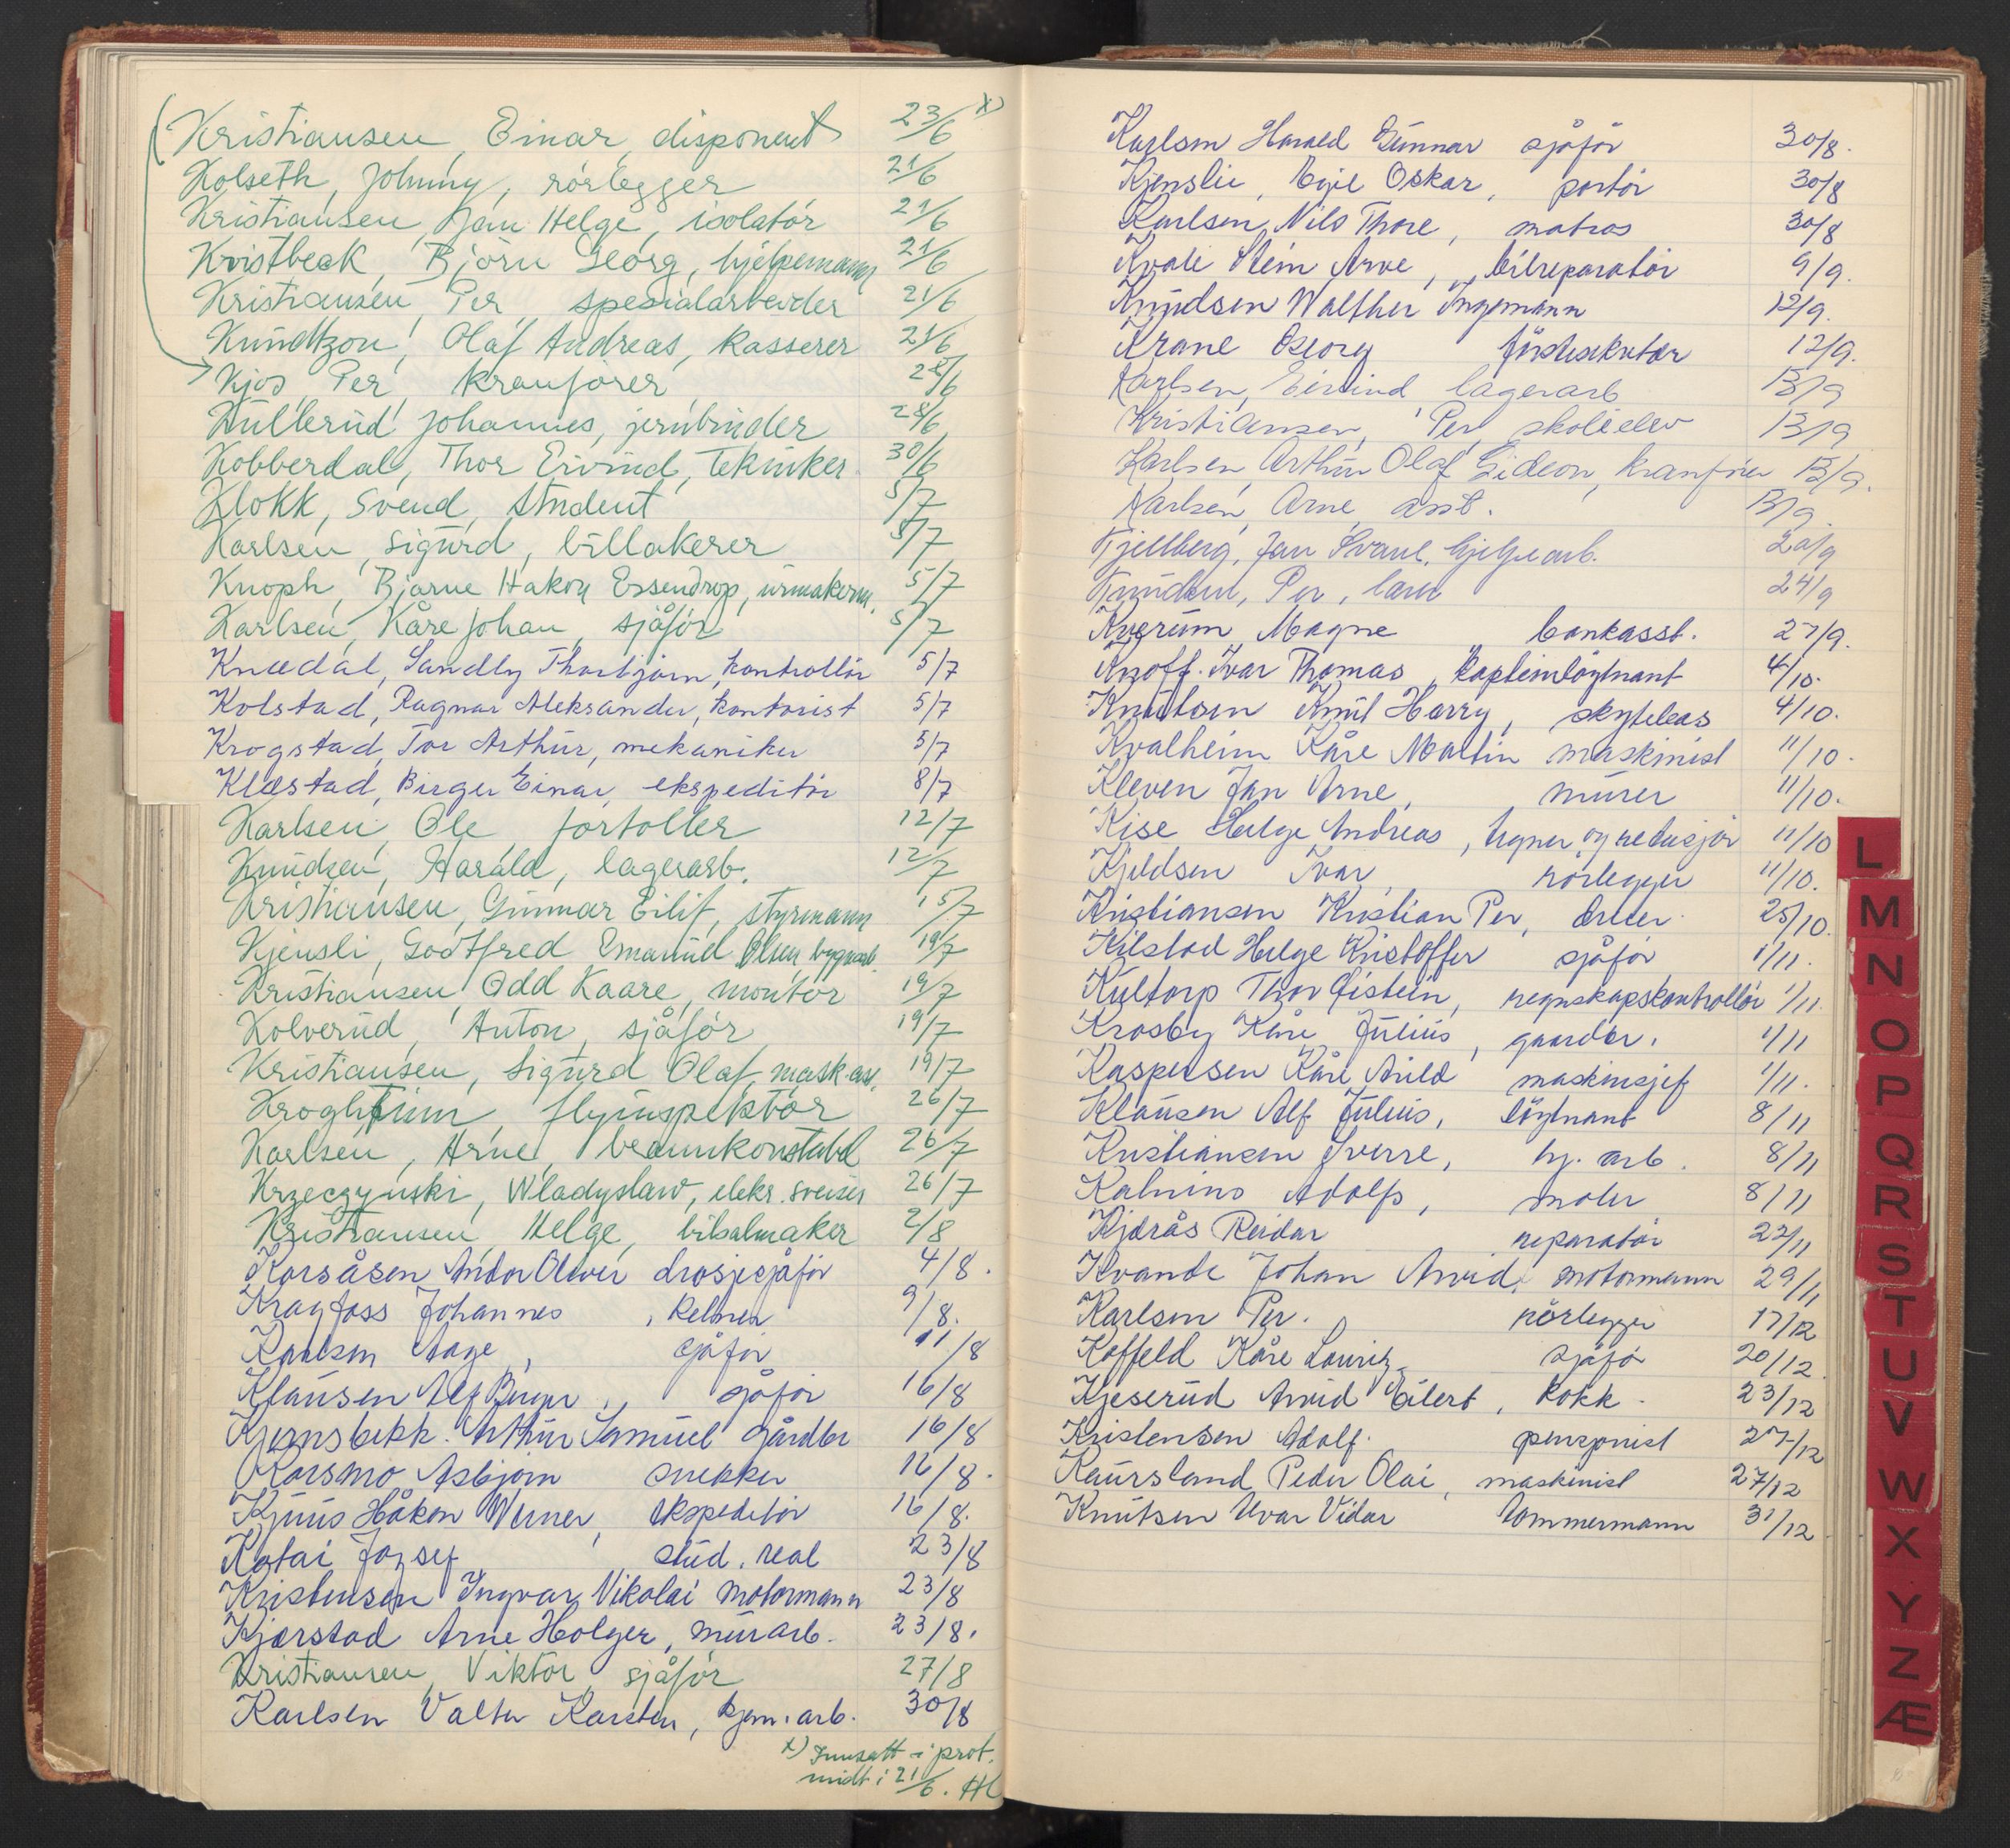 Kristiansen, Einar, disponent 23/6 x)
Kolseth, Johnny, rørlegger 21/6
Kristiansen, Jan Helge, isolatør 21/6
Kvistbeck, Bjørn Georg, hjelpemann 21/6
Kristiansen, Per, spesialarbeider 21/6
Kundtzon, Olaf Andreas, kasserer 21/6
Kjos, Per, kranfører 28/6
Hullerud Johannes, jernbinder 28/6
Kobberdal, Thor Eivind, tekniker 30/6
Klokk, Svend, student 5/7
Karlsen, Sigurd, billakerer 5/7
Knoph, Bjarne Hakon Essendrop, urmakerm. 5/7
Karlsen, Kåre Johan, sjåfør 5/7
Knædal, Sandly Thorbjørn, kontrollør 5/7
Kolstad, Ragnar Aleksander, kontorist 5/7
Krogstad, Tor Arthur, mekaniker 5/7
Klæstad, Birger Einar, ekspeditør 8/7
Karlsen, Ole, fortoller 12/7
Knudsen, Harald, lagerarb. 12/7
Kristiansen, Gunnar Eilif, styrmann 15/7
Kjensli, Godtfred Emanuel Olsen, bygnarb. 19/7
Kristiansen Odd Kaare, montør 19/7
Kolverud, Anton, sjåfør 19/7
Kristiansen, Sigurd Olaf, mask.ass. 19/7
Krogh, Finn, flyinspektør 26/7
Karlsen, Arne, brannkonstabel 26/7
Krzeczynski, Wladyslaw, elekr. sveiser 26/7
Kristiansen, Helge, bilsalmaker 2/8
Korsåsen Andor Oliver drosjesjåfør 4/8.
Kragfoss Johannes, kelner 9/8.
Karlsen Aage, sjåfør 11/8
Klausen Alf Birger, sjåfør 16/8
Kjernsbekk. Arthur Samuel gårdbr 16/8
Korsmo Asbjørn snekker 16/8.
Kjuus Håkon Werner, ekspeditør 16/8.
Katai Jozsef stud. real 23/8
Kristensen Ingvar Nikolai motormann 23/8
Kjærstad Arne Holger, murarb. 23/8.
Kristiansen, Viktor, sjåfør 27/8
Karlsen Valter Karsten, kjem. arb. 30/8
x) Innsatt i prot.
midt i 21/6. HL
Karlsen Harald Gunnar sjåfør 30/8.
Kjenslie, Egil Oskar, portør 30/8
Karlsen, Nils Thore, matros 30/8
Kvale Stein Arve, bilreparatør 9/9.
Knudsen Walther Ingemann 12/9.
Krane Georg førstesekretær 12/9.
Karlsen, Eivind lagerarb 13/9
Kristiansen, Per, skoleelev 13/9
Karlsen, Arthur Olaf Gideon, kranfører 13/9.
Karlsen, Arne asst. 13/9
Kjellberg, Jan Svane, hjelpearb. 20/9
Knudsen, Per, 24/9
Kverum Magne bankasst. 27/9.
Knoff. Ivar Thomas, kapteinløytnant 4/10.
Knutsen Knut Harry, skytebas 4/10.
Kvalheim Kåre Martin maskinist 11/10.
Kleven Jan Arne, murer 11/10.
Kise Helge Andreas, tegner og redaksjør 11/10
Kjeldsen Ivar, rørlegger 11/10.
Kristiansen Kristian Per, dreier. 25/10.
Kilstad Helge Kristoffer sjåfør 1/11.
Kultorp Thor Øistein, regnskapskontrollør 1/11.
Krosby Kåre Julius, gaardbr. 1/11
Kaspersen Kåre Arild maskinsjef 1/11.
Klausen Alf Julius, løytnant 8/11
Kristiansen Sverre, hj. arb. 8/11
Kalnins Adolfs, maler 8/11
Kjærås Reidar reparatør 22/11
Kvande Johan Arvid, motormann 29/11
Karlsen Per. rørlegger 17/12
Koffeld Kåre Lauritz sjåfør 20/12
Kjeserud Arvid Eilert, kokk. 23/12
Kristensen Adolf. pensjonist 27/12
Kaursland Peder Olai, maskinist 27/12
Knutsen Uvar Vidar tømmermann 31/12
L
M
N
O
P
Q
R
S
T
U
V
W
X
Y
Z
Æ